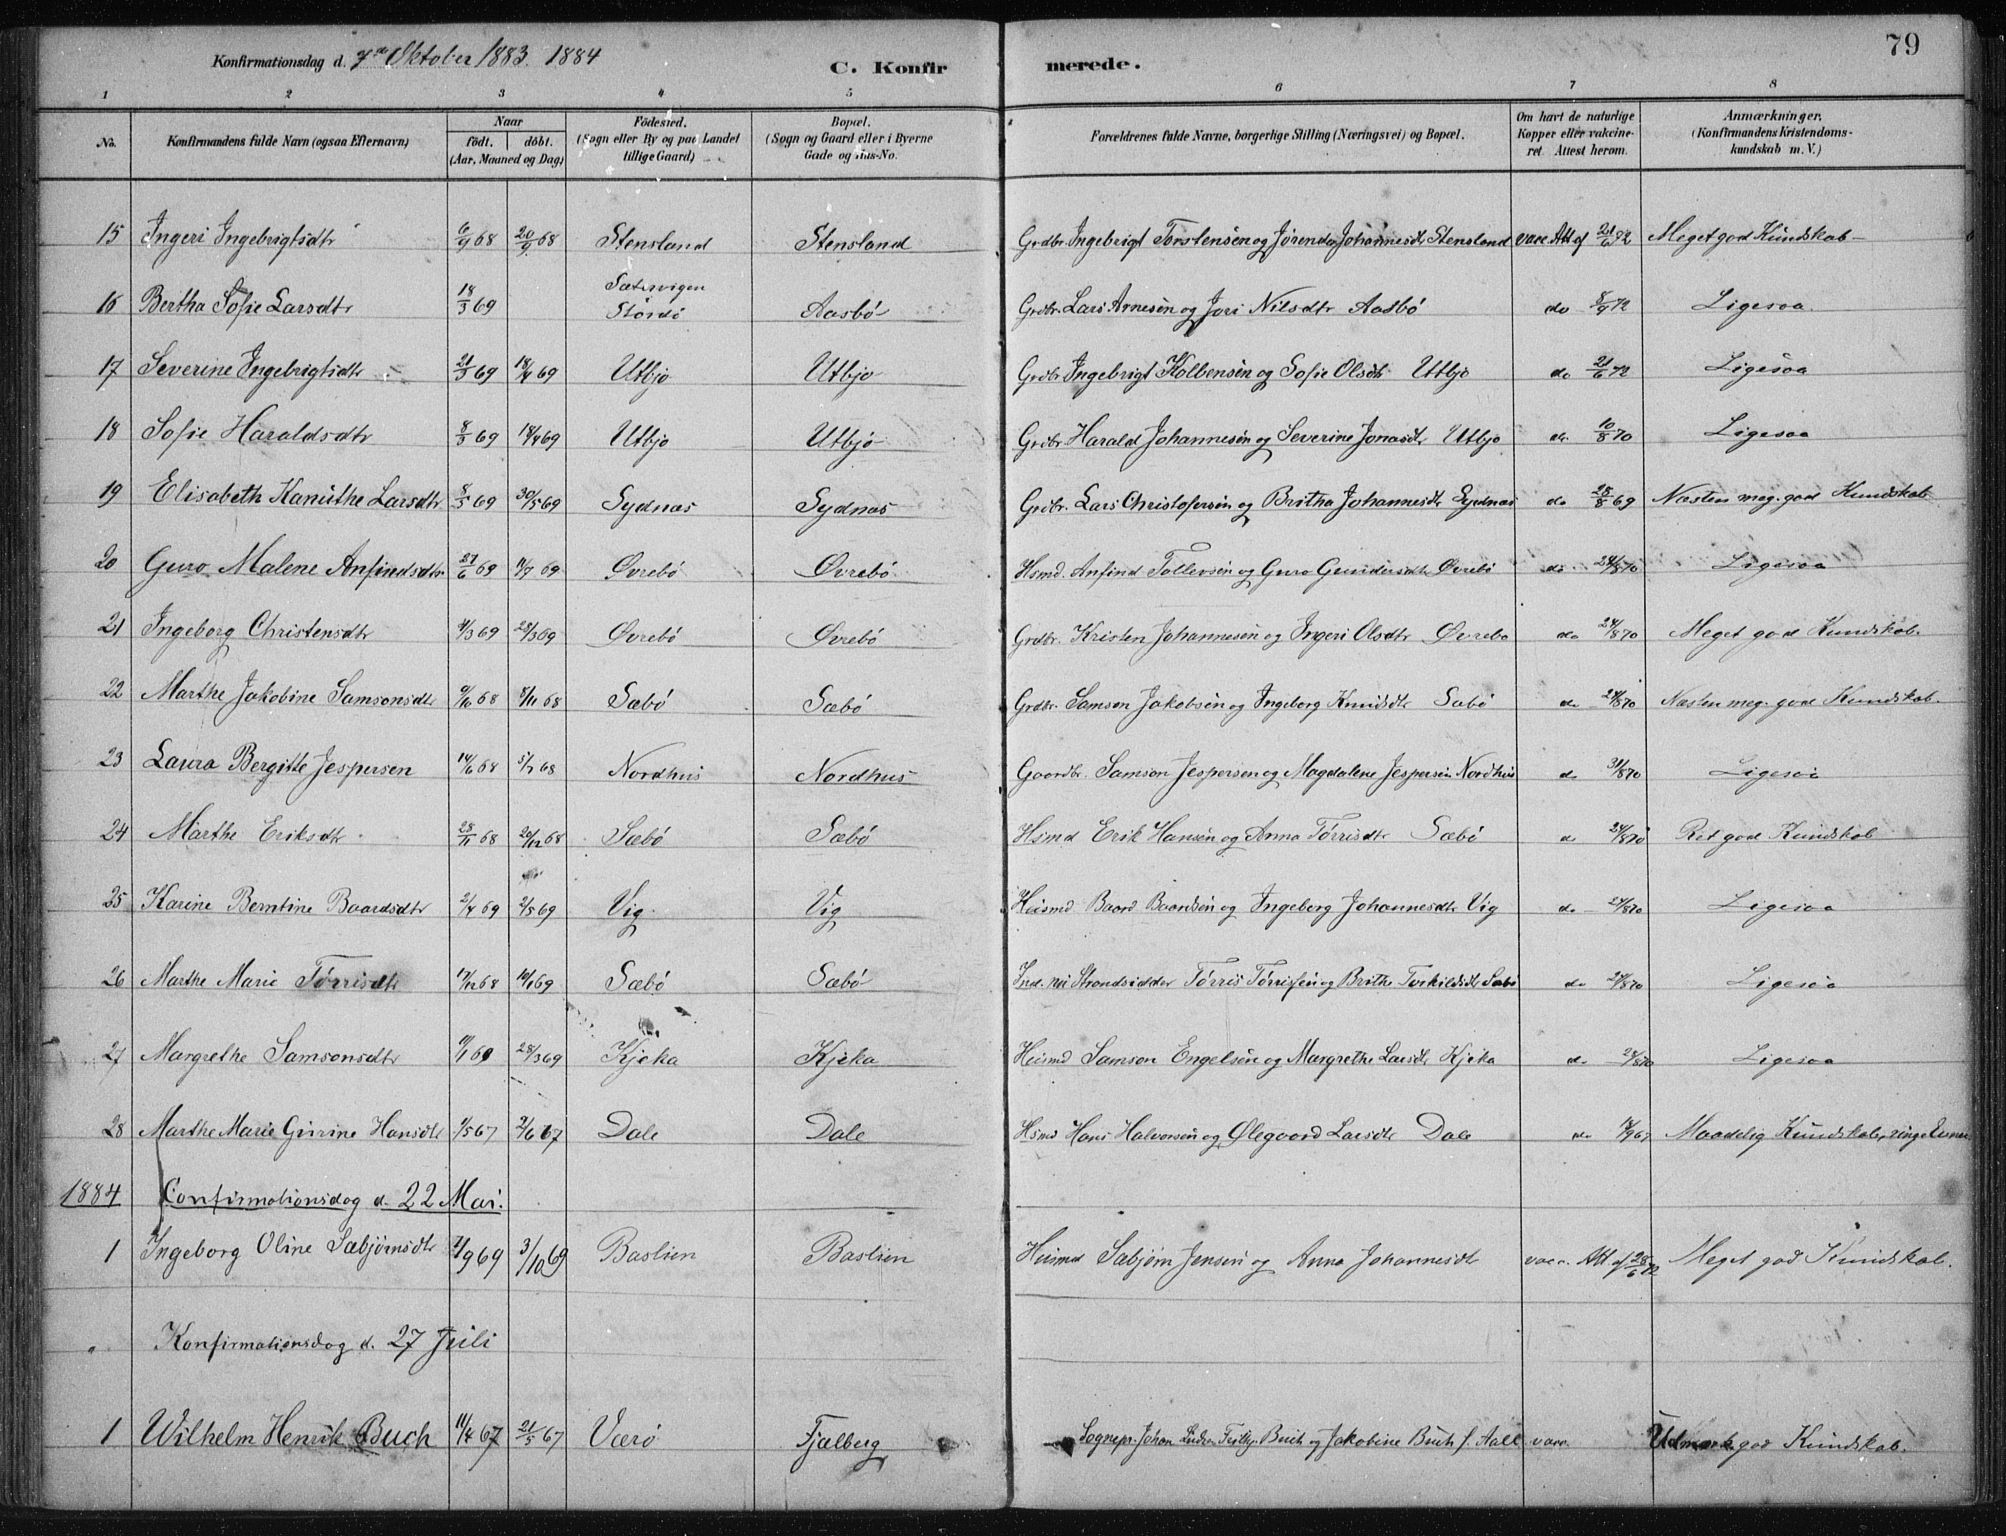 79
Konfirmationsdag d. 7de Oktober 1883. 1884
C. Konfirmerede.
1 2 3 4 5 6 7 8
No. Konfirmandens fulde Navn (ogsaa Efternavn) Naar födt. döbt. (Aar, Maaned og Dag) Födested. (Sogn eller By og paa Landet tillige Gaard) Bopæl. (Sogn og Gaard eller i Byerne Gade og Hus-No. Forældrenes fulde Navne, borgerlige Stilling (Næringsvei) og Bopæl. Om havt de naturlige Kopper eller vakcineret. Attest herom. Anmærkninger. (Konfirmandens Kristendomskundskab m. V.)
15 Ingeri Ingebrigtsdtr 6/9 68 20/9 68 Stensland Stensland Grdbr. Ingebrigt Torstensen og Jørende Johannesdtr Stensland vacc Att af 21/6 72 Meget god Kundskab
16 Bertha Sofie Larsdtr 18/3 69 Sætervigen Stordö Aasbö Grdbr. Lars Arnesen og Jori Nilsdtr Aasbö do 8/9 72 Ligesaa.
17 Severine Ingebrigtsdtr 21/3 69 18/4 69 Utbjo Utbjo Grdbr Ingebrigt Kolbensen og Sofie Olsdtr Utbjo do 21/6 72 Ligesaa
18 Sofie Haraldsdtr 8/3 69 18/4 69 Utbjo Utbjo Grdbr Harald Johannesen og Severine Jonasdtr Utbjo do. 10/8 70 Ligesaa
19 Elisabeth Kanuthe Larsdtr 8/5 69 30/5 69 Sydnæs Sydnæs Grdbr. Lars Christofersen og Britha Johannesdtr Sydnæs do 28/8 69 Næsten meg. god Kundskab
20 Guro Malene Anfindsdtr 27/6 69 11/7 69 Øvrebö Øvrebö Hsmd. Anfind Tollevsen og Guro Gundersdtr Øvrebö do 24/8 70 Ligesaa
21 Ingeborg Christensdtr 4/3 69 28/3 69 Øvrebö Øvrebö Grdbr. Kristen Johannesen og Ingeri Olsdtr Øvrebo do 24/8 70 Meget god Kundskab.
22 Marthe Jakobine Samsonsdtr 9/10 68 8/11 68 Sæbö Sæbö Grdbr. Samson Jakobsen og Ingeborg Knudsdtr Sæbö do 24/8 70 Næsten meg. god Kundskab.
23 Laura Bergitte Jespersen 14/6 68 5/7 68 Nordhus Nordhus Gaardbr. Samson Jespersen og Magdalene Jespersen Nordhus do 31/8 70 Ligesaa
24 Marthe Eriksdtr 28/11 68 20/12 68 Sæbö Sæbö Hsmd Erik Hansen og Anna Törrisdtr Sæbö do 24/8 70 Ret god Kundskab
25 Karine Berntine Baardsdtr 2/4 69 2/5 69 Vig Vig Huismd Baard Baardsen og Ingeborg Johannesdtr Vig do 24/8 70 Ligesaa
26 Marthe Marie Törrisdtr 17/12 68 10/1 69 Sæbö Sæbö Ind. og Strandsidder Törris Törrisen og Brithe Torkildsdtr Sæbö do 24/8 70 Ligesaa
27 Margrethe Samsonsdtr 28/3 69 Kjeka Kjeka Huismd Samson Engelsen og Margrethe Larsdtr Kjeka do 24/8 70 Ligesaa
28 Marthe Marie Gurine Hansdtr 1/5 67 2/6 67 Dale Dale Hsmd Hans Halvorsen og Ølegaard Larsdtr Dale do Maadelig Kundskab, ringe Evner
1884 Confirmationsdag d. 22 Mai.
1 Ingeborg Oline Sæbjörnsdtr 9 69 3/10 69 Bastien Bastien Huismd Sæbjörn Jensen og Anna Johannesdtr vacc. Att af 28/6 72 Meget god Kundskab.
" Konfirmationsdag d. 27 Juli
1 Wilhelm Henrik Buch 11/4 67 21/5 67 Værö Fjælberg Sognepr. Johan Buch og Jakobine Buch f. Aall vacc. Udmærk. god Kundskab.